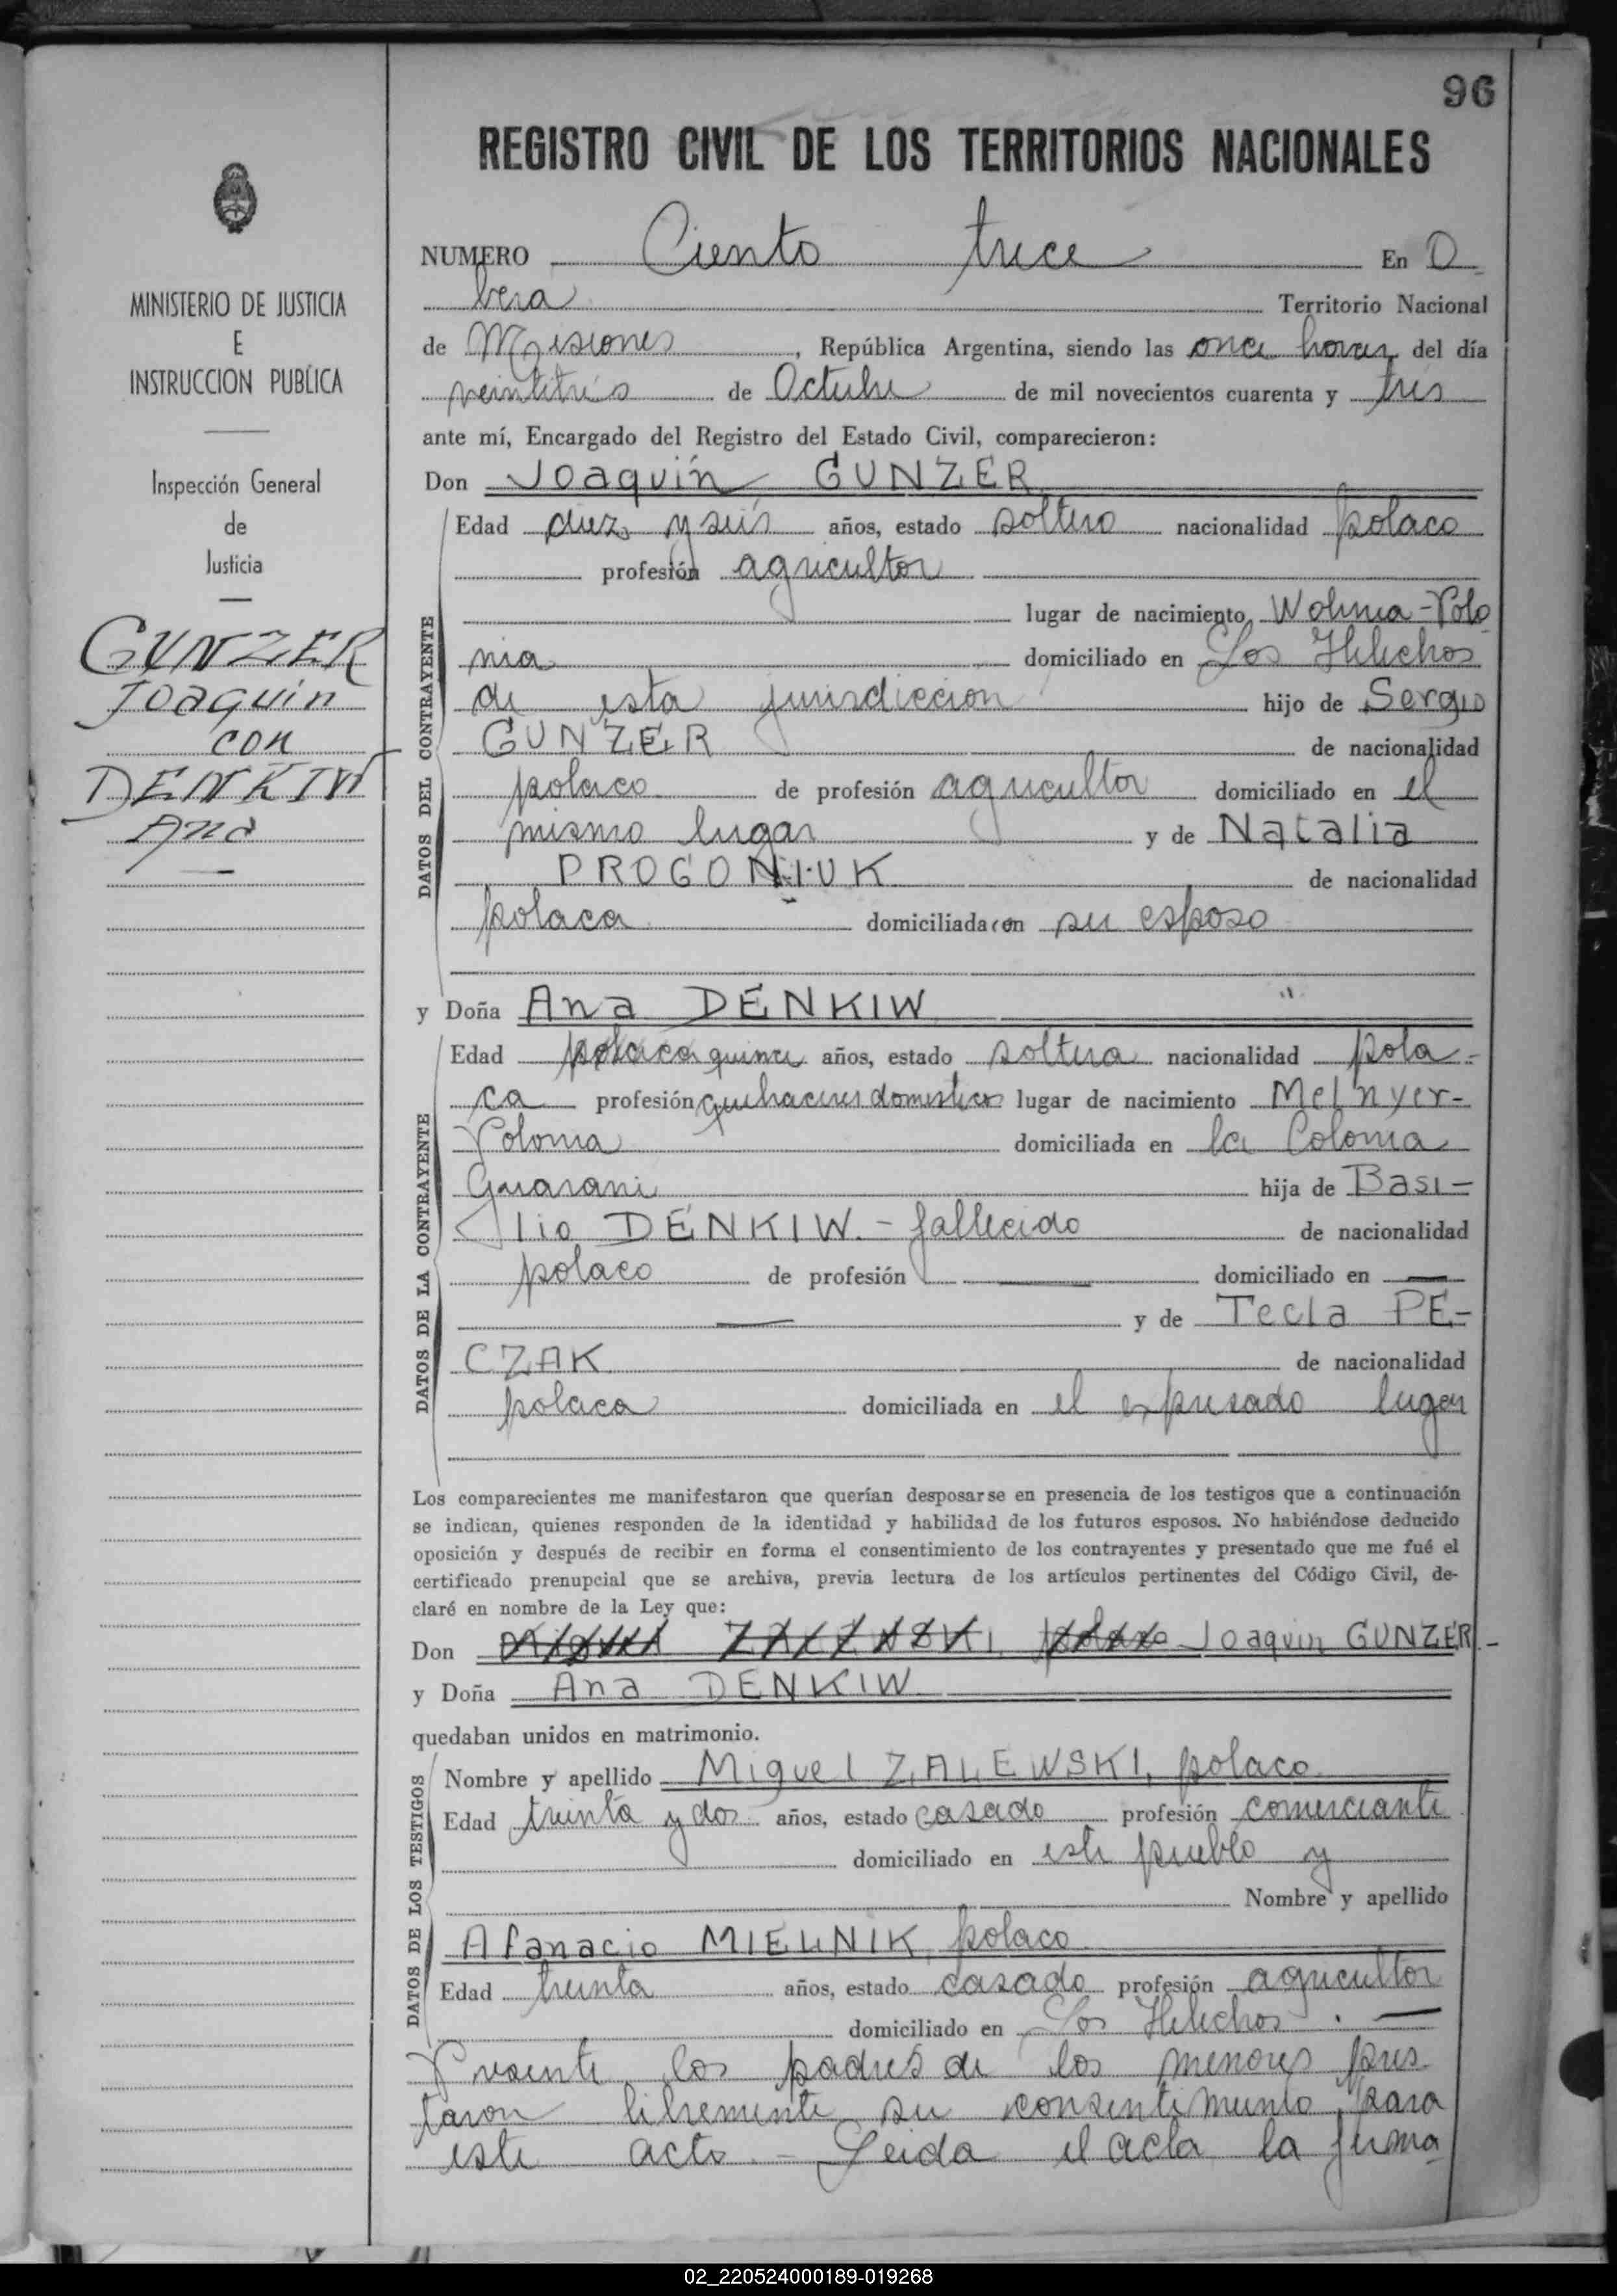 96
REGISTRO CIVIL DE LOS TERRITORIOS NACIONALES
NUMERO Ciento trece En O
bera Territorio Nacional
de Misiones, República Argentina, siendo las once horas del día
veintitrés de Octubre de mil novecientos cuarenta y tres
ante mí, Encargado del Registro del Estado Civil, comparecieron:
Don Joaquín GUNZER
Edad diez y seis años, estado soltero nacionalidad polaco
profesión agricultor
lugar de nacimiento Wolinia-Polo
nia domiciliado en Los Helechos
de esta jurisdiccion hijo de Sergio
GUNZER de nacionalidad
polaco de profesión agricultor domiciliado en el
mismo lugar y de Natalia
PROGONIUK de nacionalidad
polaca domiciliada con su esposo
DATOS DEL CONTRAYENTE
y Doña Ana DENKIW
Edad polaca quince años, estado soltera nacionalidad pola-
ca profesión quehaceres domesticos lugar de nacimiento Melnyer-
Polonia domiciliada en la Colonia
Guarani hija de Basi-
lio DENKIW.- fallecido de nacionalidad
polaco de profesión — domiciliado en —
— y de Tecla PE-
CZAK de nacionalidad
polaca domiciliada en el expresado lugar
DATOS DE LA CONTRAYENTE
Los comparecientes me manifestaron que querían desposarse en presencia de los testigos que a continuación
se indican, quienes responden de la identidad y habilidad de los futuros esposos. No habiéndose deducido
oposición y después de recibir en forma el consentimiento de los contrayentes y presentado que me fué el
certificado prenupcial que se archiva, previa lectura de los artículos pertinentes del Código Civil, de-
claré en nombre de la Ley que:
Don Miguel ZALEWSKI, polaco Joaquin GUNZER.-
y Doña Ana DENKIW
quedaban unidos en matrimonio.
Nombre y apellido Miguel ZALEWSKI, polaco
Edad treinta y dos años, estado casado profesión comerciante
domiciliado en este pueblo y
Nombre y apellido
Afanacio MIELNIK, polaco
Edad treinta años, estado casado profesión agricultor
domiciliado en Los Helechos. —
DATOS DE LOS TESTIGOS
Presente los padres de los menores pres
taron libremente su consentimiento para
este acto.- Leida el acta la firma
MINISTERIO DE JUSTICIA
E
INSTRUCCION PUBLICA
Inspección General
de
Justicia
GUNZER
Joaquin
con
DENKIW
Ana
02_220524000189-019268